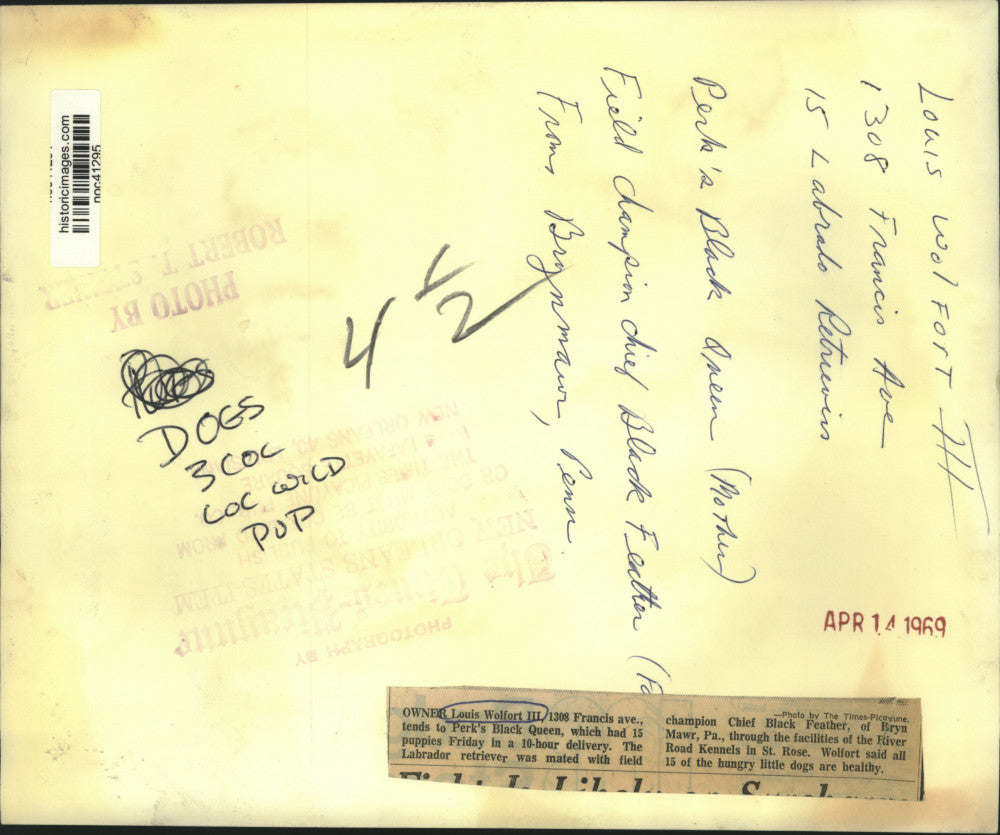 historicimages.com
noc41295
Louis Wolfort III
1308 Francis Ave
15 Labrado Retrievins
Perk's Black Queen (Mother)
Field Champion Chief Black Feather (Fa
From Brynmawr, Penn.
4
2
DOGS
3 COL
LOC WILD
PUP
PHOTO BY
ROBERT T.
PHOTOGRAPH BY
The Times-Picayune
NEW ORLEANS STATES-ITEM
AUTHORITY TO PUBLISH
OR COPY MUST BE OBTAINED FROM
THE TIMES-PICAYUNE PUB. CO.
LAFAYETTE SQUARE
NEW ORLEANS 40,
APR 14 1969
OWNER Louis Wolfort III, 1308 Francis ave.,
tends to Perk's Black Queen, which had 15
puppies Friday in a 10-hour delivery. The
Labrador retriever was mated with field
—Photo by The Times-Picayune.
champion Chief Black Feather, of Bryn
Mawr, Pa., through the facilities of the River
Road Kennels in St. Rose. Wolfort said all
15 of the hungry little dogs are healthy.